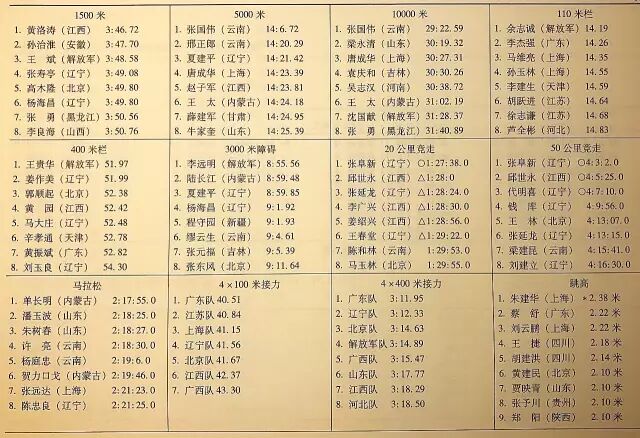 1500 米
1. 黄洛涛（江西） 3:46.72
2. 孙治淮（安徽） 3:47.70
3. 王 斌（解放军） 3:48.58
4. 张寿亭（辽宁） 3:49.08
5. 高木隆（北京） 3:49.80
6. 杨海昌（辽宁） 3:49.80
7. 张 勇（黑龙江） 3:50.56
8. 李良海（山西） 3:50.76
5000 米
1. 张国伟（云南） 14:6.72
2. 邢正郎（云南） 14:20.29
3. 夏建平（辽宁） 14:21.42
4. 唐成华（上海） 14:23.39
5. 赵子军（江西） 14:23.81
6. 王 太（内蒙古） 14:24.18
7. 薛建军（甘肃） 14:24.95
8. 牛家奎（山东） 14:25.39
10000 米
1. 张国伟（云南） 29:22.59
2. 梁永清（山东） 30:19.32
3. 唐成华（上海） 30:27.31
4. 袁庆和（吉林） 30:30.26
5. 吴志汉（河南） 30:38.72
6. 王 太（内蒙古） 31:02.19
7. 沈国献（解放军） 31:28.37
8. 张 勇（黑龙江） 31:40.89
110 米栏
1. 余志诚（解放军） 14.19
2. 李杰强（广东） 14.26
3. 马维亮（上海） 14.35
4. 孙玉林（上海） 14.55
5. 李建生（天津） 14.59
6. 胡跃进（江苏） 14.64
7. 徐志谦（江苏） 14.68
8. 芦全彬（河北） 14.83
400 米栏
1. 王贵华（解放军） 51.97
2. 姜作美（辽宁） 51.99
3. 郭顺起（北京） 52.38
4. 黄 园（江西） 52.42
5. 马大庄（辽宁） 52.48
6. 辛孝通（天津） 52.78
7. 黄振斌（广东） 52.82
8. 刘玉良（辽宁） 54.30
3000 米障碍
1. 李远明（湖南） 8:55.56
2. 陆长江（内蒙古） 8:59.48
3. 夏建平（辽宁） 8:59.85
4. 杨海昌（辽宁） 9:1.92
5. 程守园（新疆） 9:1.93
6. 缪云生（云南） 9:4.61
7. 张元福（吉林） 9:5.39
8. 张东风（北京） 9:11.64
20 公里竞走
1. 张阜新（辽宁） ○1:27:38.0
2. 邱世永（江西） △1:28:0
3. 张延龙（辽宁） △1:28:24.0
4. 李广兴（江西） △1:28:30.0
5. 姜绍兴（江西） △1:28:56.0
6. 王春堂（辽宁） △1:29:22.0
7. 陈和林（云南） 1:29:53.0
8. 马玉林（北京） 1:29:55.0
50 公里竞走
1. 张阜新（辽宁） ○4:3:2.0
2. 邱世永（江西） ○4:5:25.0
3. 代明喜（辽宁） ○4:7:10.0
4. 钱 库（辽宁） 4:9:56.0
5. 王 林（北京） 4:13:07.0
6. 张延龙（辽宁） 4:13:15.0
7. 梁建昆（云南） 4:15:41.0
8. 刘建立（辽宁） 4:16:30.0
马拉松
1. 单长明（内蒙古） 2:17:55.0
2. 潘玉波（山东） 2:18:25.0
3. 朱树春（山东） 2:18:27.0
4. 许 亮（云南） 2:18:30.0
5. 杨庭忠（云南） 2:19:6.0
6. 贺力口戈（内蒙古） 2:19:46.0
7. 张远达（上海） 2:21:23.0
8. 陈忠良（辽宁） 2:21:25.0
4×100 米接力
1. 广东队 40.51
2. 江苏队 40.84
3. 上海队 41.15
4. 辽宁队 41.56
5. 北京队 41.67
6. 江西队 42.37
7. 广西队 43.30
4×400 米接力
1. 广东队 3:11.95
2. 辽宁队 3:12.33
3. 北京队 3:14.63
4. 解放军队 3:14.89
5. 广西队 3:15.47
6. 山东队 3:17.77
7. 江西队 3:18.29
8. 河北队 3:18.50
跳高
1. 朱建华（上海） *2.38 米
2. 蔡 舒（广东） 2.22 米
3. 刘云鹏（上海） 2.22 米
4. 王 捷（四川） 2.18 米
5. 胡建洪（四川） 2.14 米
6. 黄建民（北京） 2.10 米
7. 贾映青（山东） 2.10 米
8. 张予川（贵州） 2.10 米
9. 郑 阳（陕西） 2.10 米